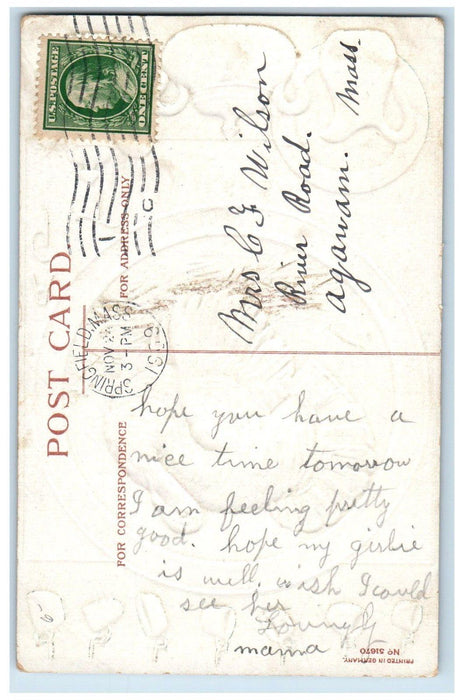 U.S. POSTAGE
ONE CENT
SPRINGFIELD, MASS.
NOV 2
3-PM
POST CARD
FOR ADDRESS ONLY
Mrs C F Wilson
River Road.
Agawam. Mass.
FOR CORRESPONDENCE
hope you have a
nice time tomorrow
I am feeling pretty
good. hope my girlie
is well. wish I could
see her
Lovingly
mama
PRINTED IN GERMANY.
No 51670